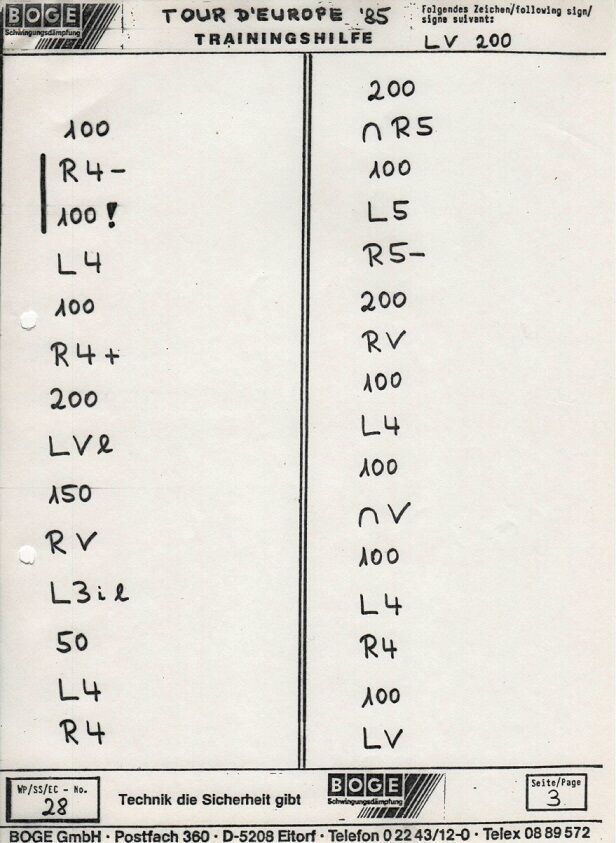 BOGE
Schwingungsdämpfung
TOUR D'EUROPE '85
TRAININGSHILFE
Folgendes Zeichen/following sign/
signe suivant:
LV 200
100
R4-
100!
L4
100
R4+
200
LVl
150
RV
L3il
50
L4
R4
200
∩ R5
100
L5
R5-
200
RV
100
L4
100
∩ V
100
L4
R4
100
LV
WP/SS/EC - No.
28
Technik die Sicherheit gibt
BOGE
Schwingungsdämpfung
Seite/Page
3
BOGE GmbH · Postfach 360 · D-5208 Eitorf · Telefon 0 22 43/12-0 · Telex 08 89 572